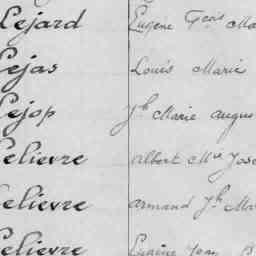 Lejard Eugène Geos Ma
Lejas Louis Marie
Lejop Jh Marie augus
Lelievre albert Mie Jose
Lelievre armand Jh Ma
Lelievre Eugène Jean B